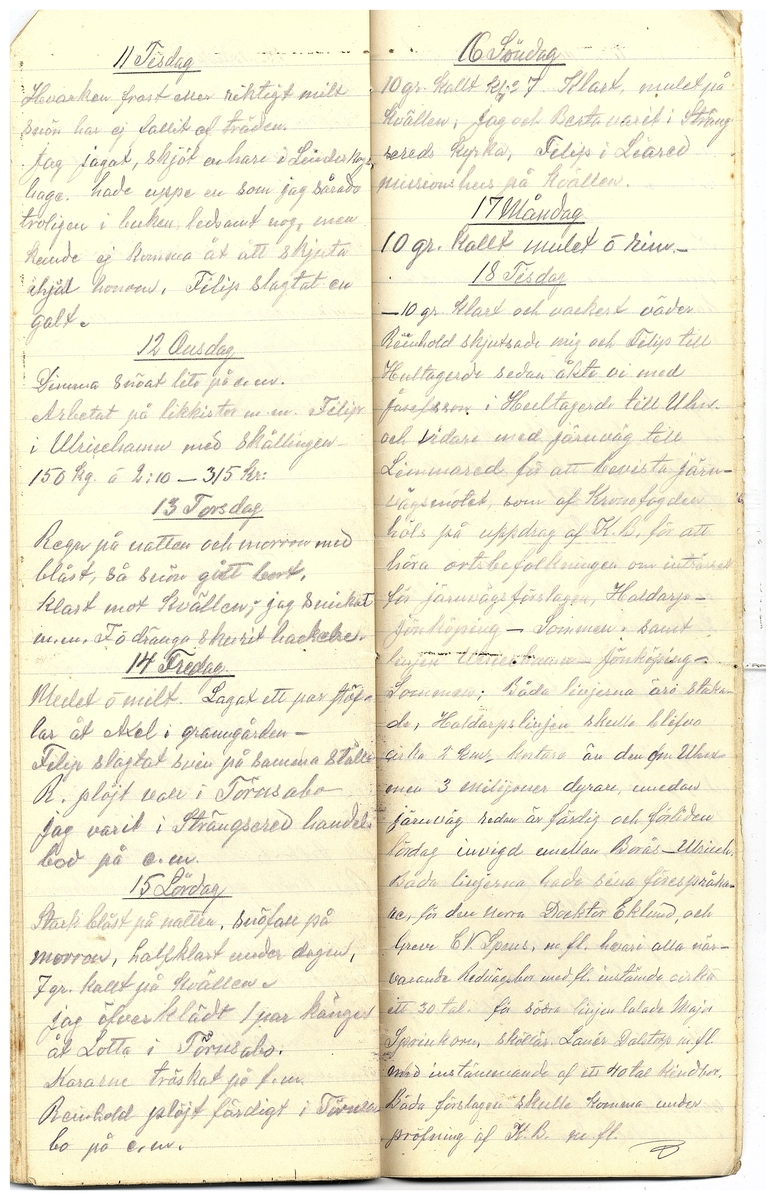 11 Tisdag
Hvarken frost eller riktigt milt
snön har ej fallit af träden.
Jag jagat, skjöt en hare i
hage. hade uppe en som jag sårade
troligen i buken, ledsamt nog, men
kunde ej komma åt att skjuta
ihjäl honom. Filip slagtat en
galt.
12 Onsdag
Dimma snöat lite på e.m.
Arbetat på likkistor m.m. Filip
i Ulricehamn med skållingen
150 Kg. á 2:10 — 315 kr:
13 Torsdag
Regn på natten och morron med
blåst, så snön gått bort,
klart mot kvällen; jag snickat
m.m. Fä dränga skurit hackelse.
14 Fredag
Mulet ö milt. Lagat ett par stöf-
lar åt Axel i granngården —
Filip slagtat svin på samma ställe
R. plöjt vall i Törnsabo
jag varit i Strängsered handels
bod på e.m.
15 Lördag
Stark blåst på natten, snöfan på
morron, halfklart under dagen,
7 gr. kallt på kvällen.
jag öfverklädt 1 par kängor
åt Lotta i Törnsabo.
Kararne tröskat på f.m.
Reinhold plöjt färdigt i Törnsa
bo på e.m.
16 Söndag
10 gr. kallt kl. 7. Klart, mulet på
kvällen, jag och Berta varit i Sträng
sereds kyrka, Filip i Liared
missionshus på kvällen.
17 Måndag
10 gr. kallt mulet ö rim. —
18 Tisdag
—10 gr klart och vackert väder
Reinhold skjutsade mig och Filip till
Hultagerde sedan åkte vi med
Josefsson i Hultagerde till Uhn.
och vidare med järnväg till
Limmared för att bevista järn-
vägsmötet, som af Kronofogden
höls på uppdrag af K.B. för att
höra ortsbefolkningen om intresset
för järnvägsförslagen, Haldarp —
Jönköping — Sommen. samt
linjen Ulricehamn — Jönköping —
Sommen; Båda linjerna äro staka-
de, Haldarpslinjen skulle blifva
cirka 2 kortare än den öfver Uhn
men 3 miljoner dyrare, medan
järnväg redan är färdig och förliden
lördag invigd emellan Borås — Ulriceh.
Båda linjerna hade sina förespråka-
re, för den norra Doktor Eklund, och
Greve C. Sparre, m fl. hvari alla när-
varande Redvägsbor med fl. instämde cirka
ett 30 tal. för södra linjen talade Major
Lanér Dalstorp m. fl.
med instämmande af ett 40 tal kindbor.
Båda förslagen skulle komma under
pröfning af K.B. m fl.